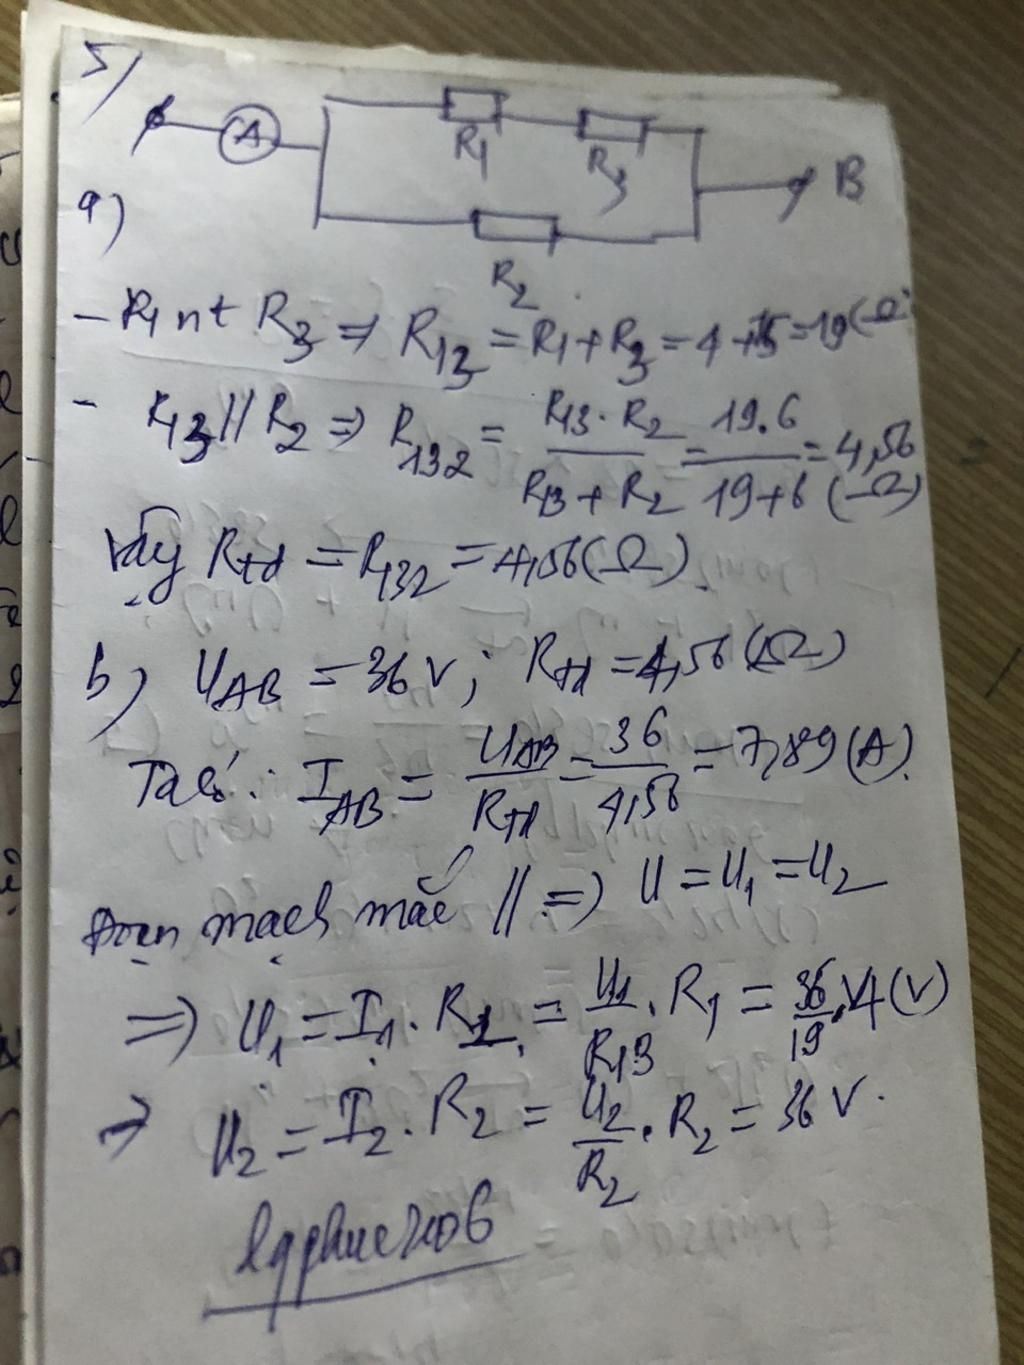 5)
A
R1
R3
B
a)
R2
- R1 nt R3 => R13 = R1 + R3 = 4 + 15 = 19 (Ω)
- R13 // R2 => R132 = R13 . R2 / R13 + R2 = 19.6 / 19+6 = 4,56 (Ω)
Vậy Rtđ = R132 = 4,56 (Ω).
b) UAB = 36 V; Rtđ = 4,56 (Ω)
Ta có: IAB = UAB / Rtđ = 36 / 4,56 = 7,89 (A).
Đoạn mạch mắc // => U = U1 = U2
=> U1 = I1 . R1 = U1 / R13 . R1 = 36 / 19 . 4 (V)
→ U2 = I2 . R2 = U2 / R2 . R2 = 36 V.